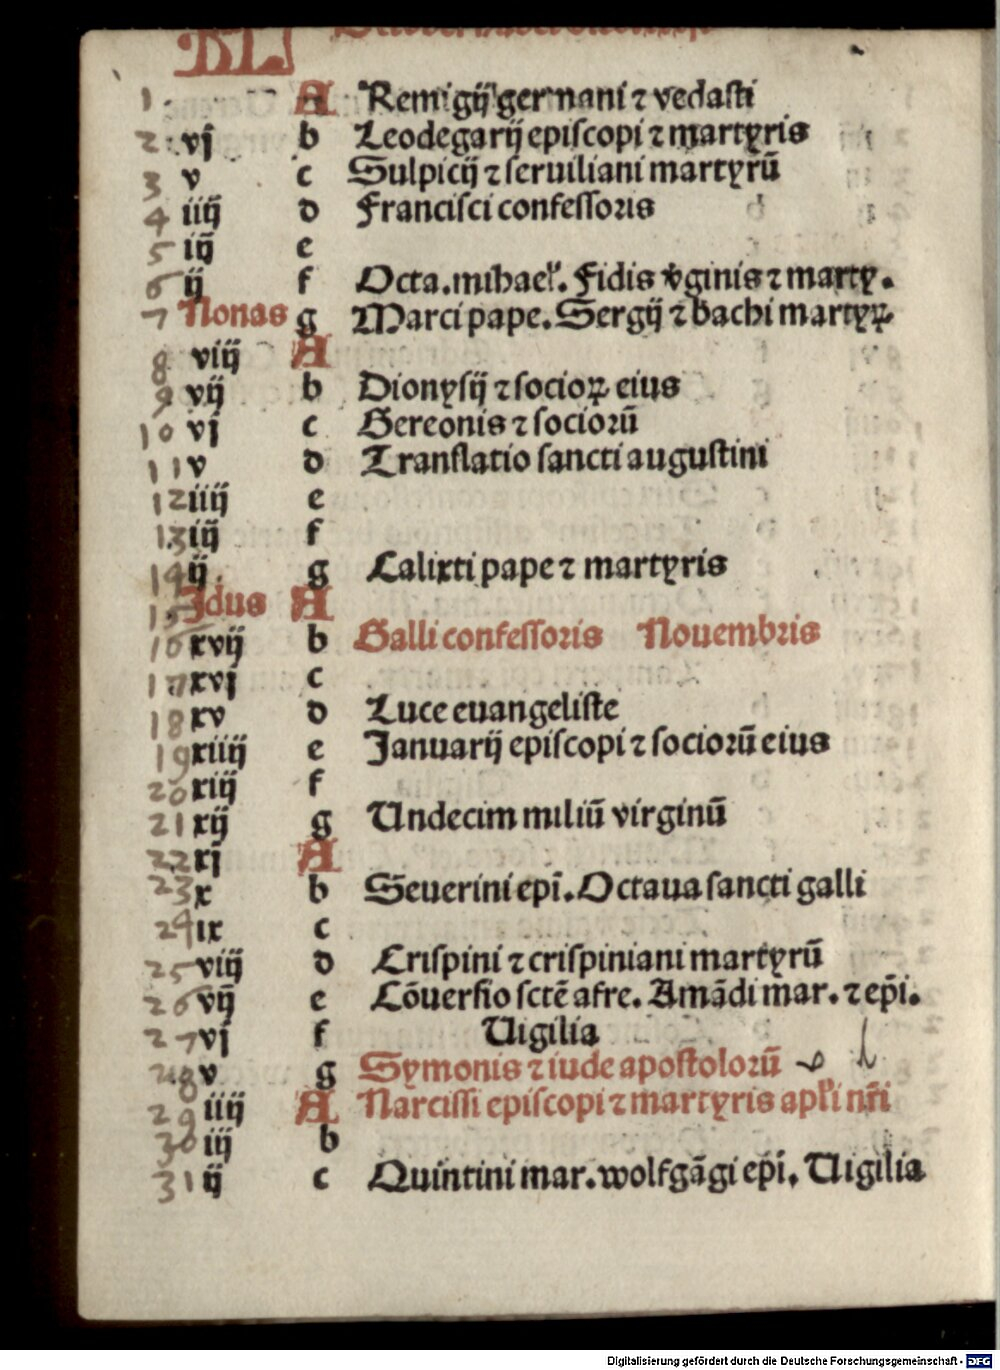 KL October habet dies xxxj
1 A Remigij germani ⁊ vedasti
2 vj b Leodegarij episcopi ⁊ martyris
3 v c Sulpicij ⁊ seruiliani martyrū
4 iiij d Francisci confessoris
5 iij e
6 ij f Octa. mihael'. Fidis v̾ginis ⁊ marty.
7 Nonas g Marci pape. Sergij ⁊ bachi martyꝝ
8 viij A
9 vij b Dionysij ⁊ socioꝝ eius
10 vj c Gereonis ⁊ sociorū
11 v d Translatio sancti augustini
12 iiij e
13 iij f
14 ij g Calixti pape ⁊ martyris
15 Idus A
16 xvij b Galli confessoris Nouembris
17 xvj c
18 xv d Luce euangeliste
19 xiiij e Januarij episcopi ⁊ sociorū eius
20 xiij f
21 xij g Undecim miliū virginū
22 xj A
23 x b Seuerini epī. Octaua sancti galli
24 ix c
25 viij d Crispini ⁊ crispiniani martyrū
26 vij e Cōuersio sctē afre. Amādi mar. ⁊ ep̄i.
27 vj f Uigilia
28 v g Symonis ⁊ iude apostolorū
29 iiij A Narcissi episcopi ⁊ martyris apl'i nr̄i
30 iij b
31 ij c Quintini mar. wolfgāgi ep̄i. Uigilia
Digitalisierung gefördert durch die Deutsche Forschungsgemeinschaft - DFG